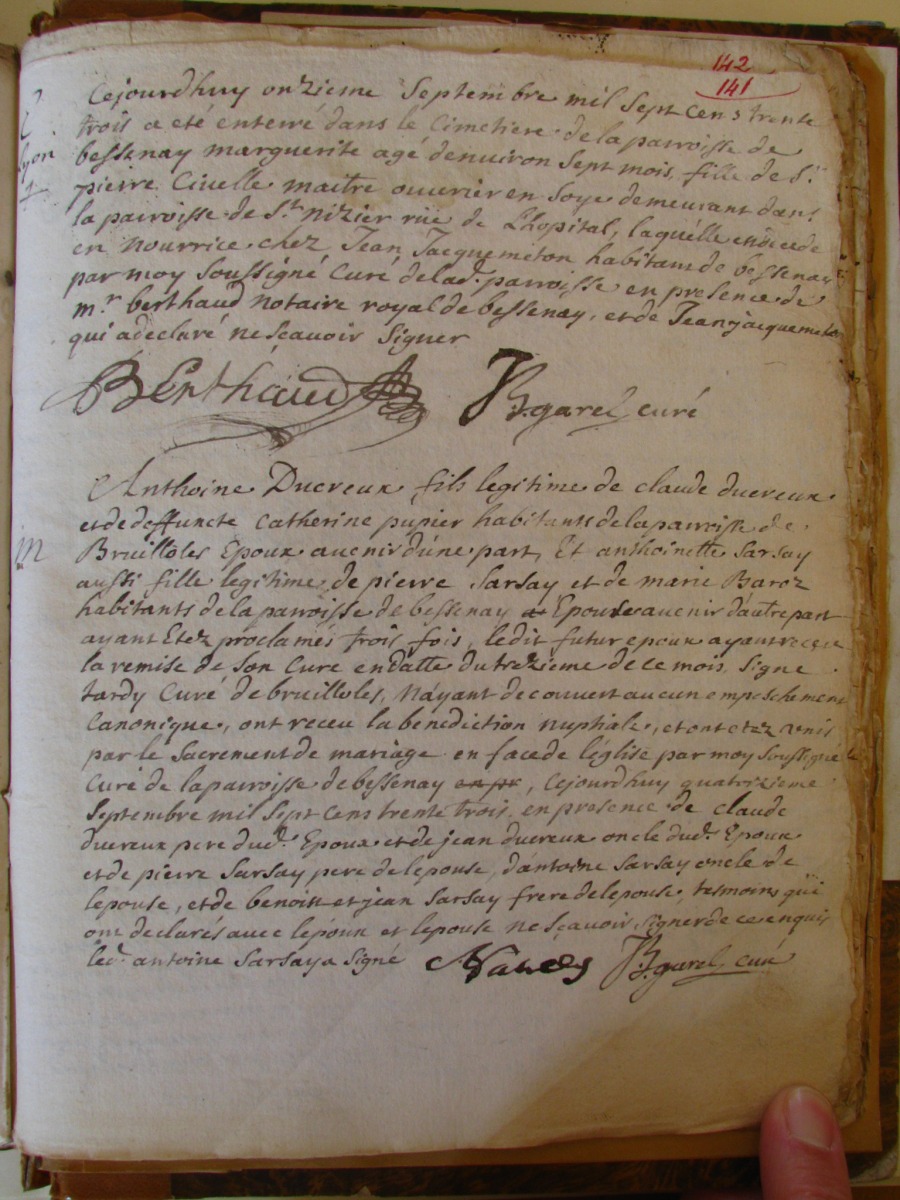 142
141
Cejourdhuy onzieme Septembre mil Sept Cens trente
trois a eté enterré dans le Cimetiere de la parroisse de
bessenay marguerite agé denuiron Sept mois, fille de Sr.
pierre Civelle maitre ouurier en Soye demeurant dans
Lyon
la parroisse de St. nizier rüe de Lhopital, laquélle
en nourrice chez Jean Jacquemeton habitant de bessenay
par moy Soussigné Curé delad. parroisse en presence de
mr. berthaud notaire royal de bessenay, et de Jean jacquemeton
qui a declaré ne sçauoir Signer
Berthaud
B. garel curé
Anthoine Ducreux fils legitime de claude ducreux
et de deffuncte Catherine pupier habitants de la parroisse de
M
Bruilloles Epoux auenir d'une part, Et anthoinette Sarsay
aussi fille legitime de pierre Sarsay et de marie Baroz
habitants de la parroisse de bessenay Epouse auenir d'autre part
ayant Etez proclamés trois fois, ledit futur epoux ayant receu
la remise de Son Curé en datte du trezieme de ce mois Signe
tardy Curé de bruilloles, N'ayant decouuert aucun empeschement
Canonique, ont receu la benediction nuptiale, et ont etez vnis
par le Sacrement de mariage en face de l'église par moy soussigné
Curé de la parroisse de bessenay en pr, Cejourdhuy quatrizieme
Septembre mil Sept Cens trente trois en presence de claude
ducreux pere dud. Epoux et de jean ducreux oncle dud. Epoux
et de pierre Sarsay pere de lepouse, d'antoine Sarsay oncle de
lepouse, et de benoist et jean Sarsay frere de lepouse, tesmoins qui
ont declarés auec lépoux et lepouse ne sçauoir Signer de ce enquis
led. antoine Sarsay a Signé
B. garel curé